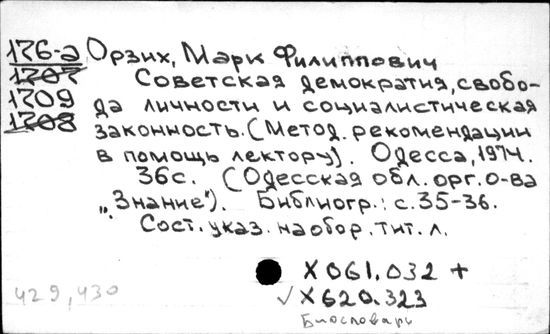 176-а Орзих, Марк Филиппович
1707 Советская демократия, свобо-
1709 да личности и социалистическая
1708 законность. (Метод. рекомендации
в помощь лектору). Одесса, 1974.
36с. (Одесская обл. орг. о-ва
„Знание"). Библиогр.: с. 35-36.
Сост. указ. на обор. тит. л.
X061.032 +
429, 430 ✓ X620.323
Биословарь